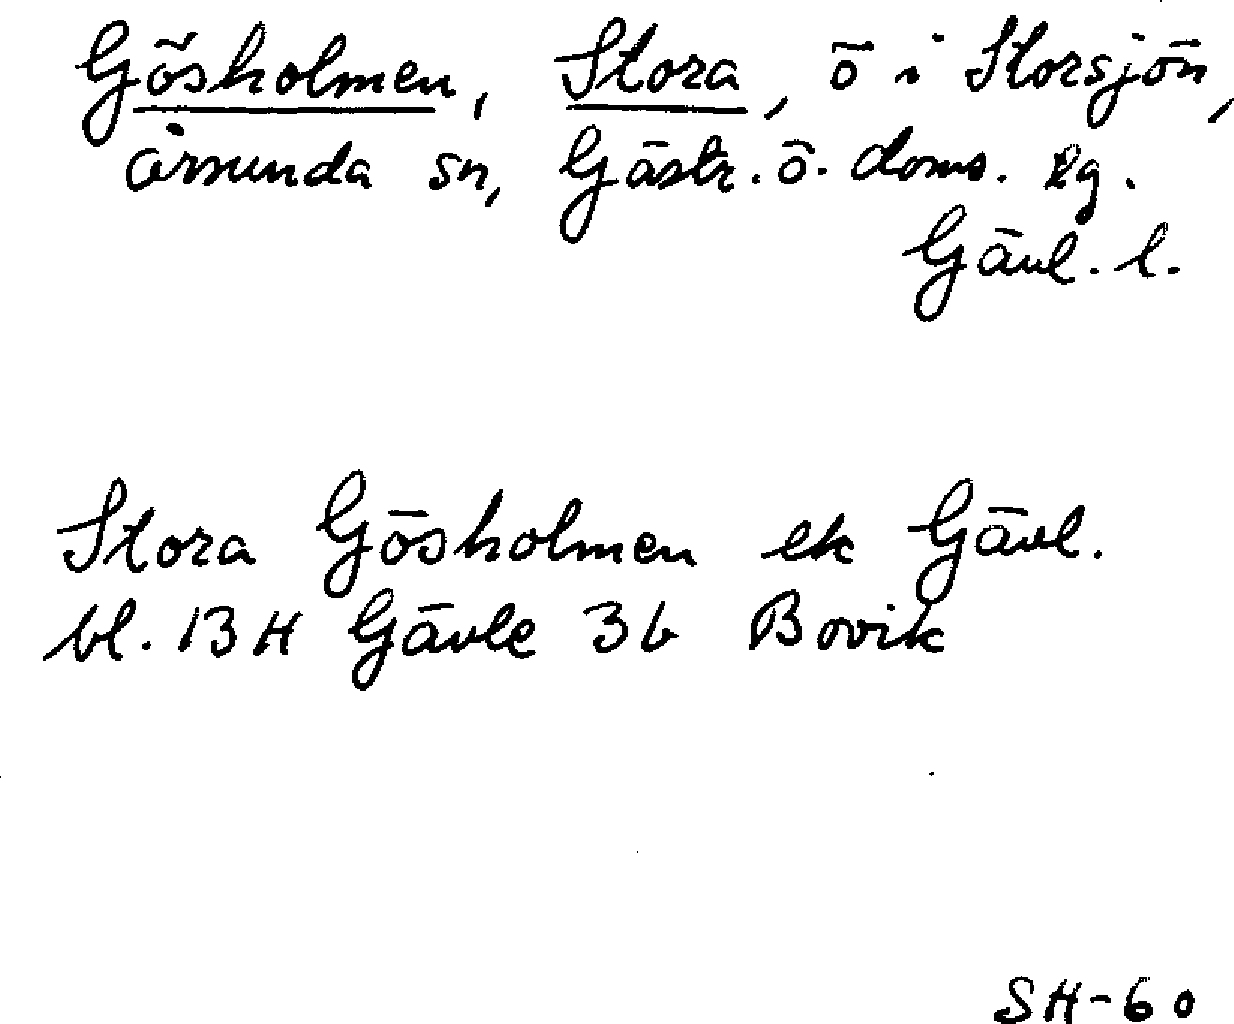 Gösholmen, Stora, ö i Storsjön,
Årsunda sn, Gästr. ö. doms. lg.
Gävl. l.
Stora Gösholmen ek Gävl.
bl. 13H Gävle 3b Bovik
SH-60